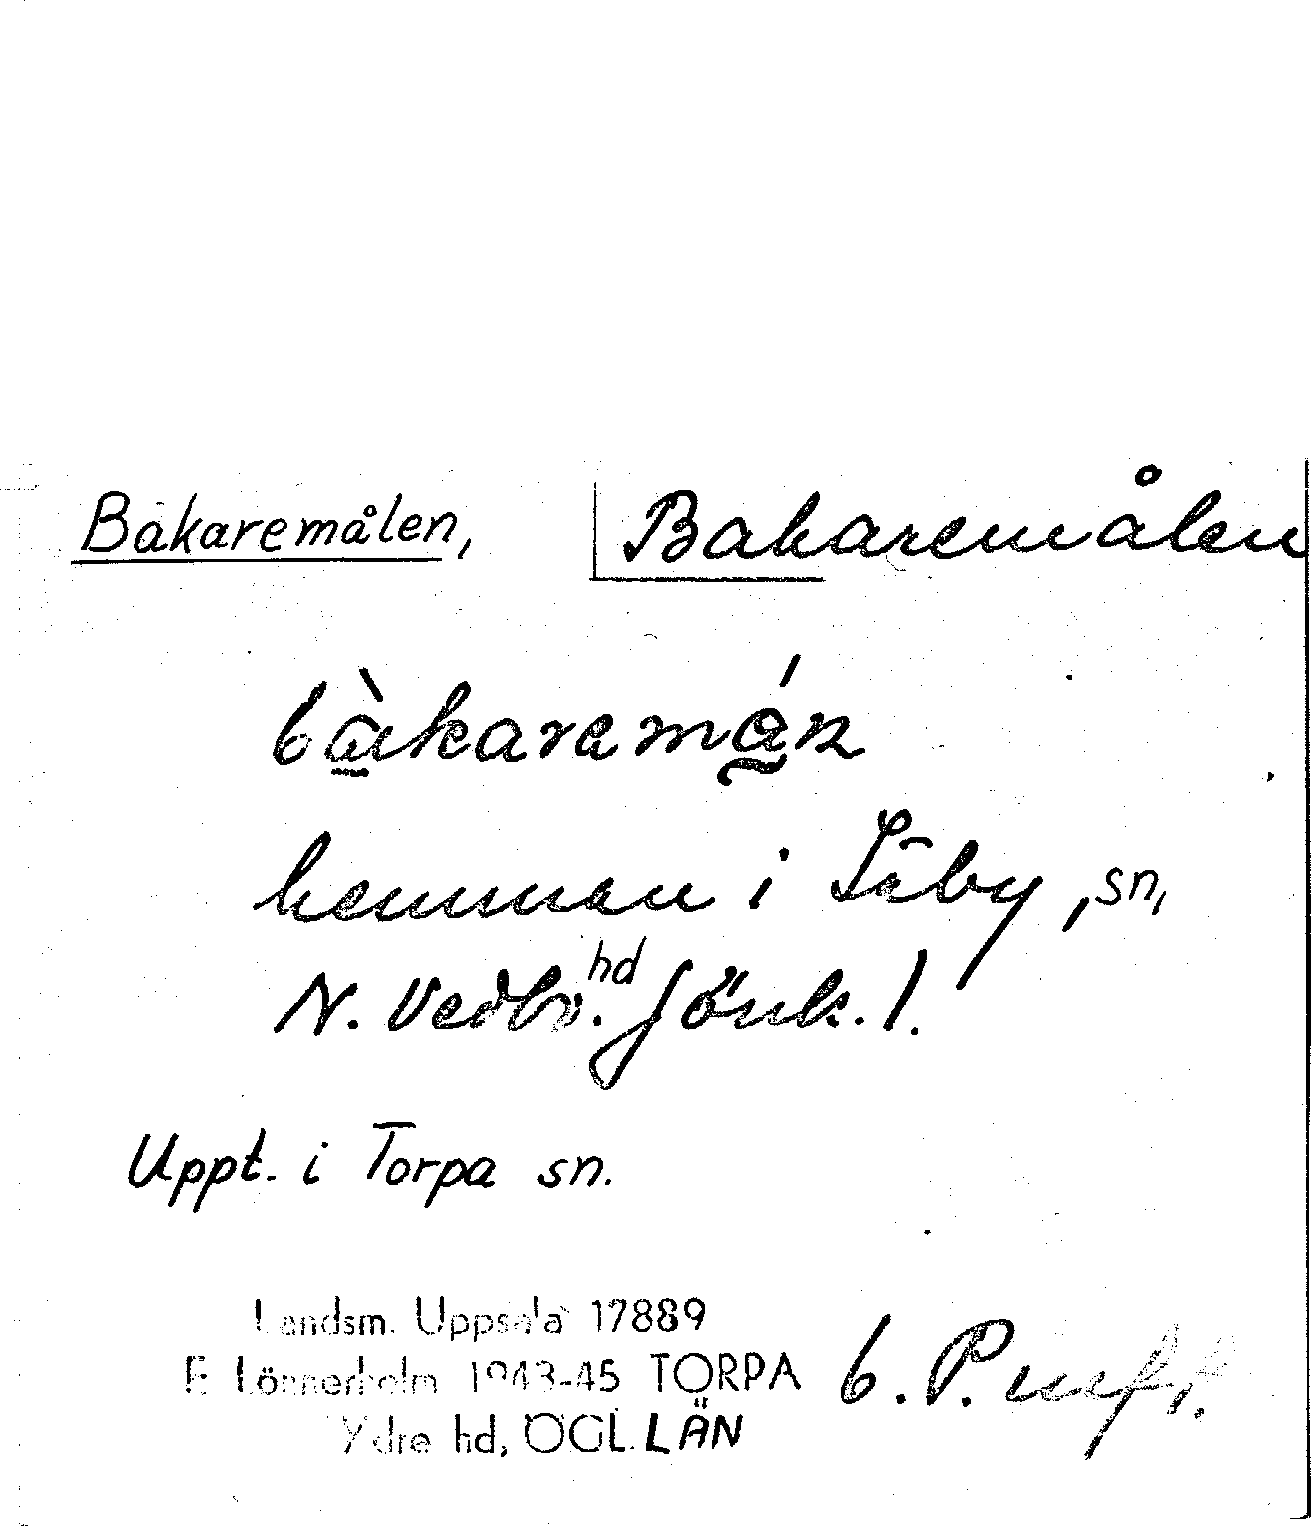 Bakaremålen, Bakaremålen
bàkaremán
hemman i Säby, sn,
N. Vedbo. hd Jönk. l.
Uppt. i Torpa sn.
Landsm. Uppsala 17889
E Lönnerholm 1943-45 TORPA 6. P.
Ydre hd, ÖGL. LÄN